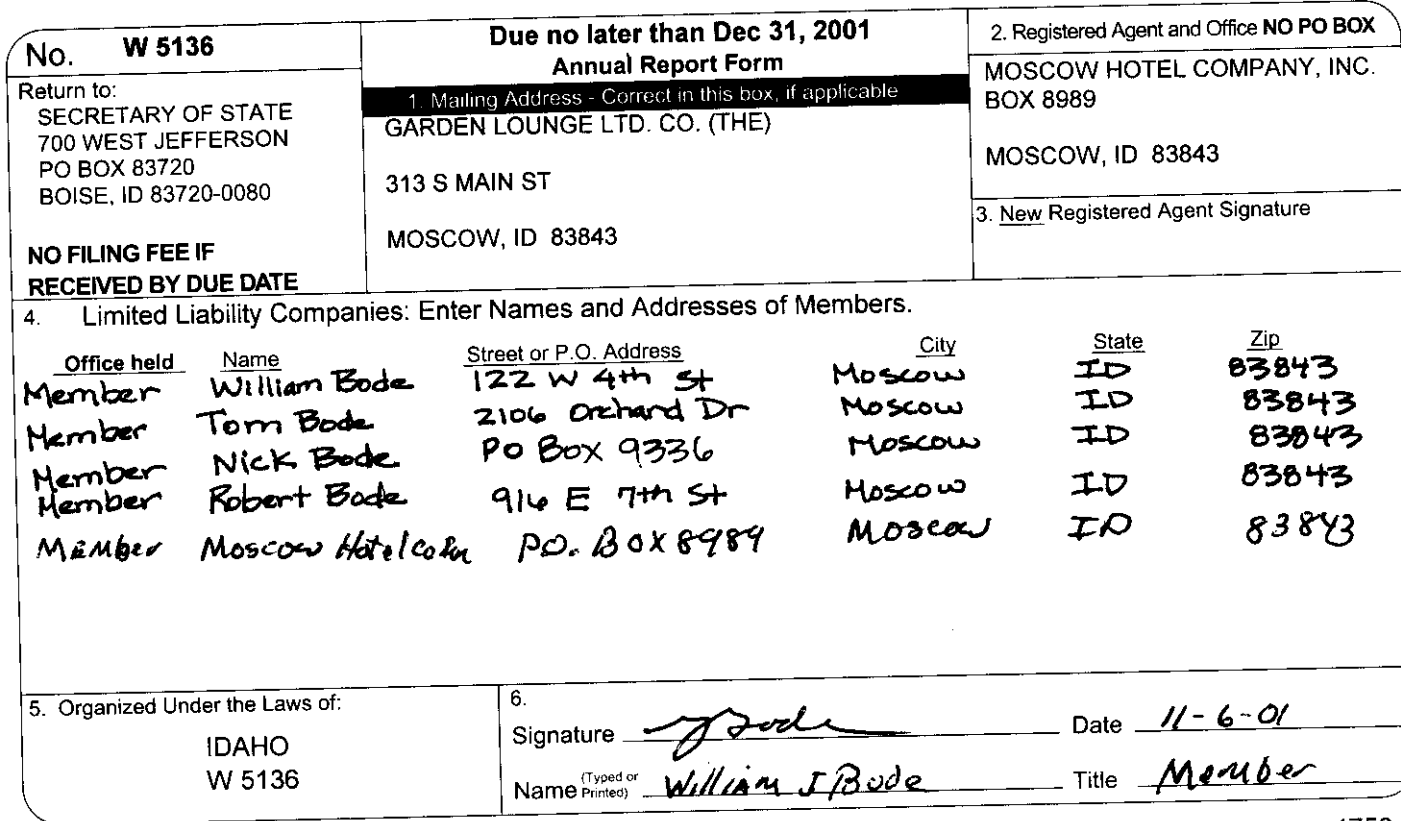 No. W 5136
Return to:
SECRETARY OF STATE
700 WEST JEFFERSON
PO BOX 83720
BOISE, ID 83720-0080
NO FILING FEE IF
RECEIVED BY DUE DATE
Due no later than Dec 31, 2001
Annual Report Form
1. Mailing Address - Correct in this box, if applicable
GARDEN LOUNGE LTD. CO. (THE)
313 S MAIN ST
MOSCOW, ID 83843
2. Registered Agent and Office NO PO BOX
MOSCOW HOTEL COMPANY, INC.
BOX 8989
MOSCOW, ID 83843
3. New Registered Agent Signature
4. Limited Liability Companies: Enter Names and Addresses of Members.
Office held Name Street or P.O. Address City State Zip
Member William Bode 122 W 4th St Moscow ID 83843
Member Tom Bode 2106 Orchard Dr Moscow ID 83843
Member Nick Bode PO Box 9336 Moscow ID 83843
Member Robert Bode 916 E 7th St Moscow ID 83843
Member Moscow Hotel Co P.O. Box 8989 Moscow ID 83843
5. Organized Under the Laws of:
IDAHO
W 5136
6.
Signature Bode Date 11-6-01
Name (Typed or Printed) William J Bode Title Member